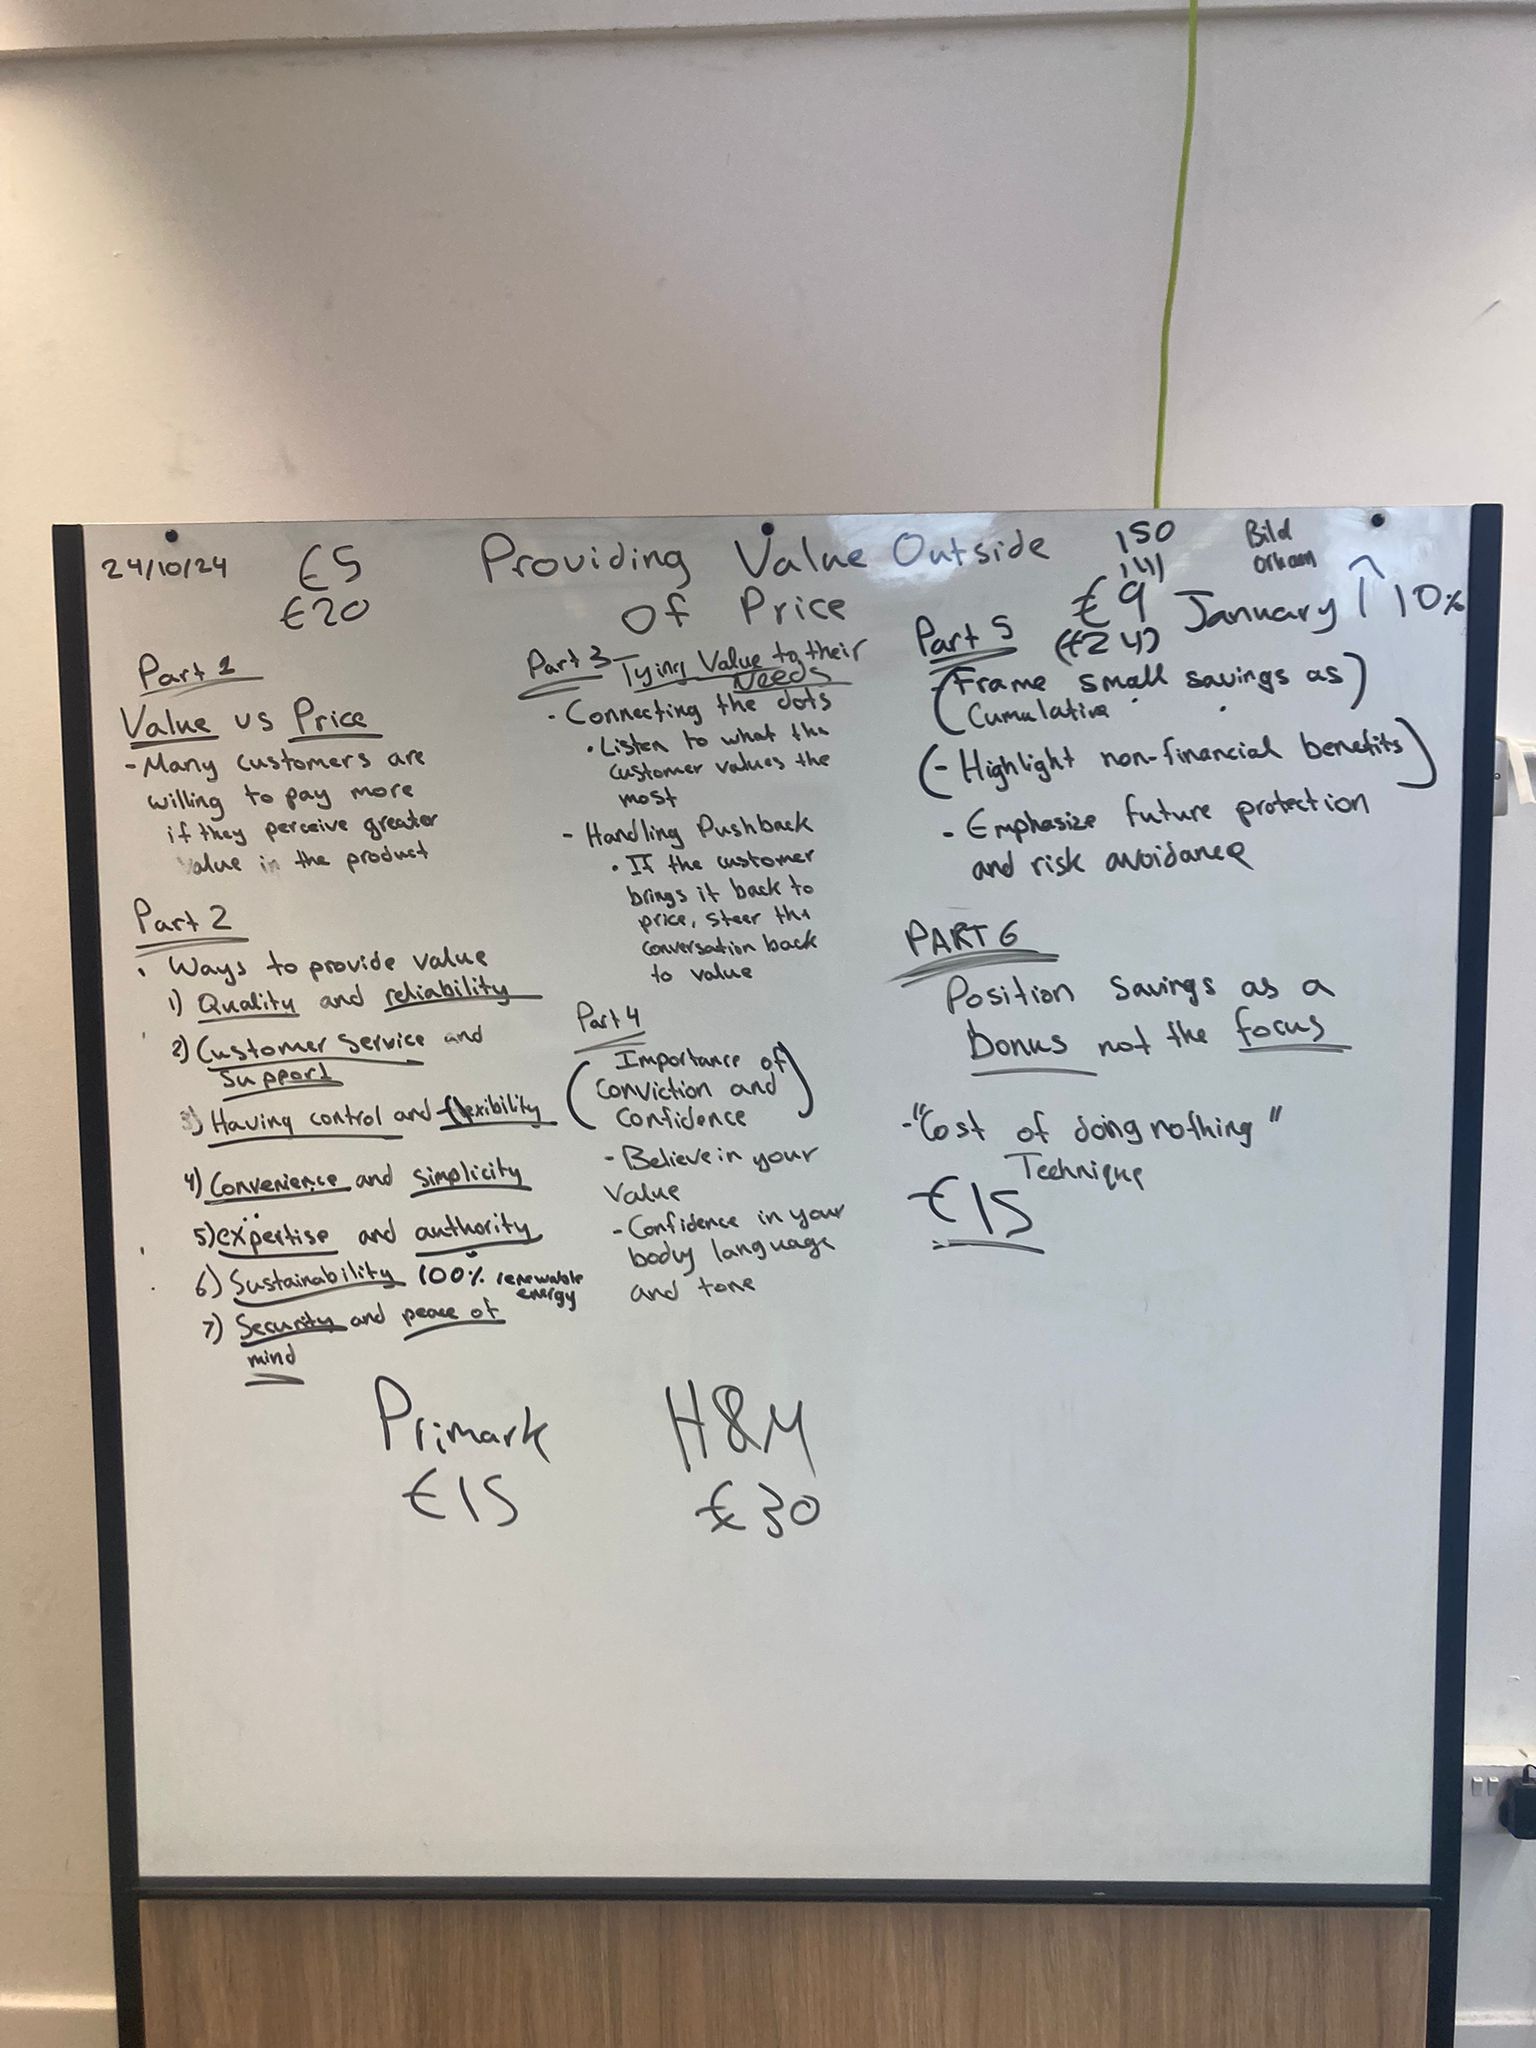 24/10/24
€5
€20
Providing Value Outside
Of Price
150
141
€9
(€24)
January ↑ 10%
Part 1
Value vs Price
- Many customers are
willing to pay more
if they perceive greater
value in the product
Part 2
• Ways to provide value
1) Quality and reliability
2) Customer Service and
Support
3) Having control and flexibility
4) Convenience and simplicity
5) expertise and authority
6) Sustainability 100% renewable
energy
7) Security and peace of
mind
Part 3 - Tying Value to their
Needs
- Connecting the dots
• Listen to what the
customer values the
most
- Handling Pushback
• If the customer
brings it back to
price, steer the
conversation back
to value
Part 4
(Importance of
Conviction and
Confidence)
- Believe in your
value
- Confidence in your
body language
and tone
Part 5
(- Frame small savings as
Cumulative)
(- Highlight non-financial benefits)
- Emphasize future protection
and risk avoidance
PART 6
Position Savings as a
bonus not the focus
- "Cost of doing nothing"
Technique
€15
Primark
€15
H&M
€30